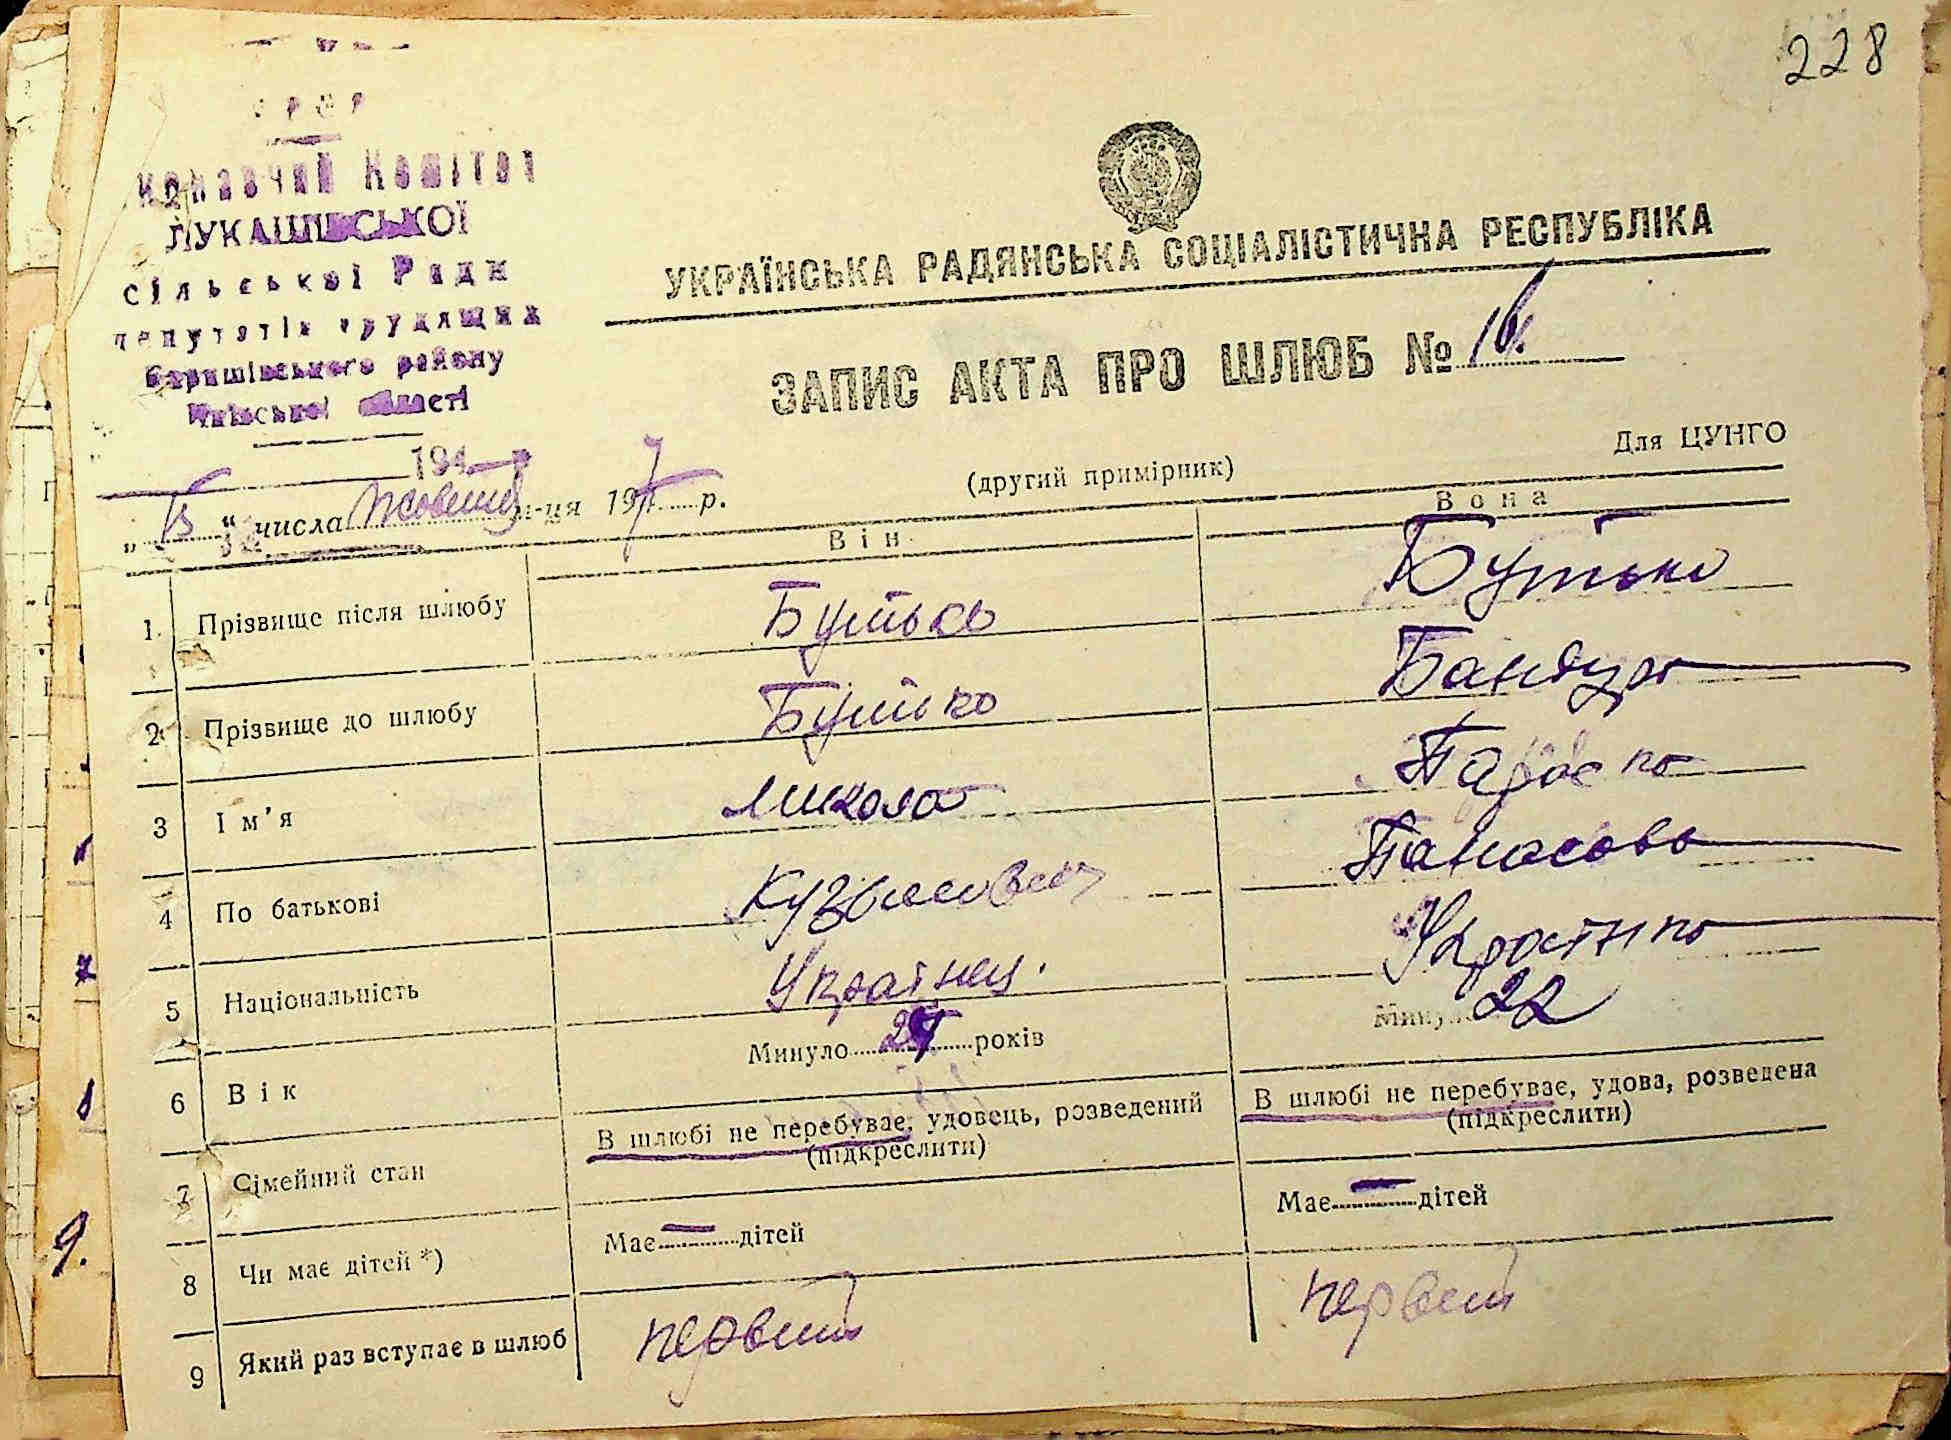 228
Комітет
ЛУКАШІВСЬКОЇ
сільської Ради
депутатів трудящих
Баришівського району
Київської області
194
УКРАЇНСЬКА РАДЯНСЬКА СОЦІАЛІСТИЧНА РЕСПУБЛІКА
ЗАПИС АКТА ПРО ШЛЮБ №
Для ЦУНГО
(другий примірник)
„ 15 “ числа м-ця 1947 р.
Він Вона
1 Прізвище після шлюбу Бутько Бутько
2 Прізвище до шлюбу Бутько Бандура
3 Ім'я Микола Параска
4 По батькові Кузьмович Панасовна
5 Національність Українец. Українка
6 Вік Минуло років Минуло 22
7 Сімейний стан В шлюбі не перебуває, удовець, розведений В шлюбі не перебуває, удова, розведена
(підкреслити) (підкреслити)
8 Чи має дітей *) Має — дітей Має — дітей
9 Який раз вступає в шлюб первий первий
7
8
9.